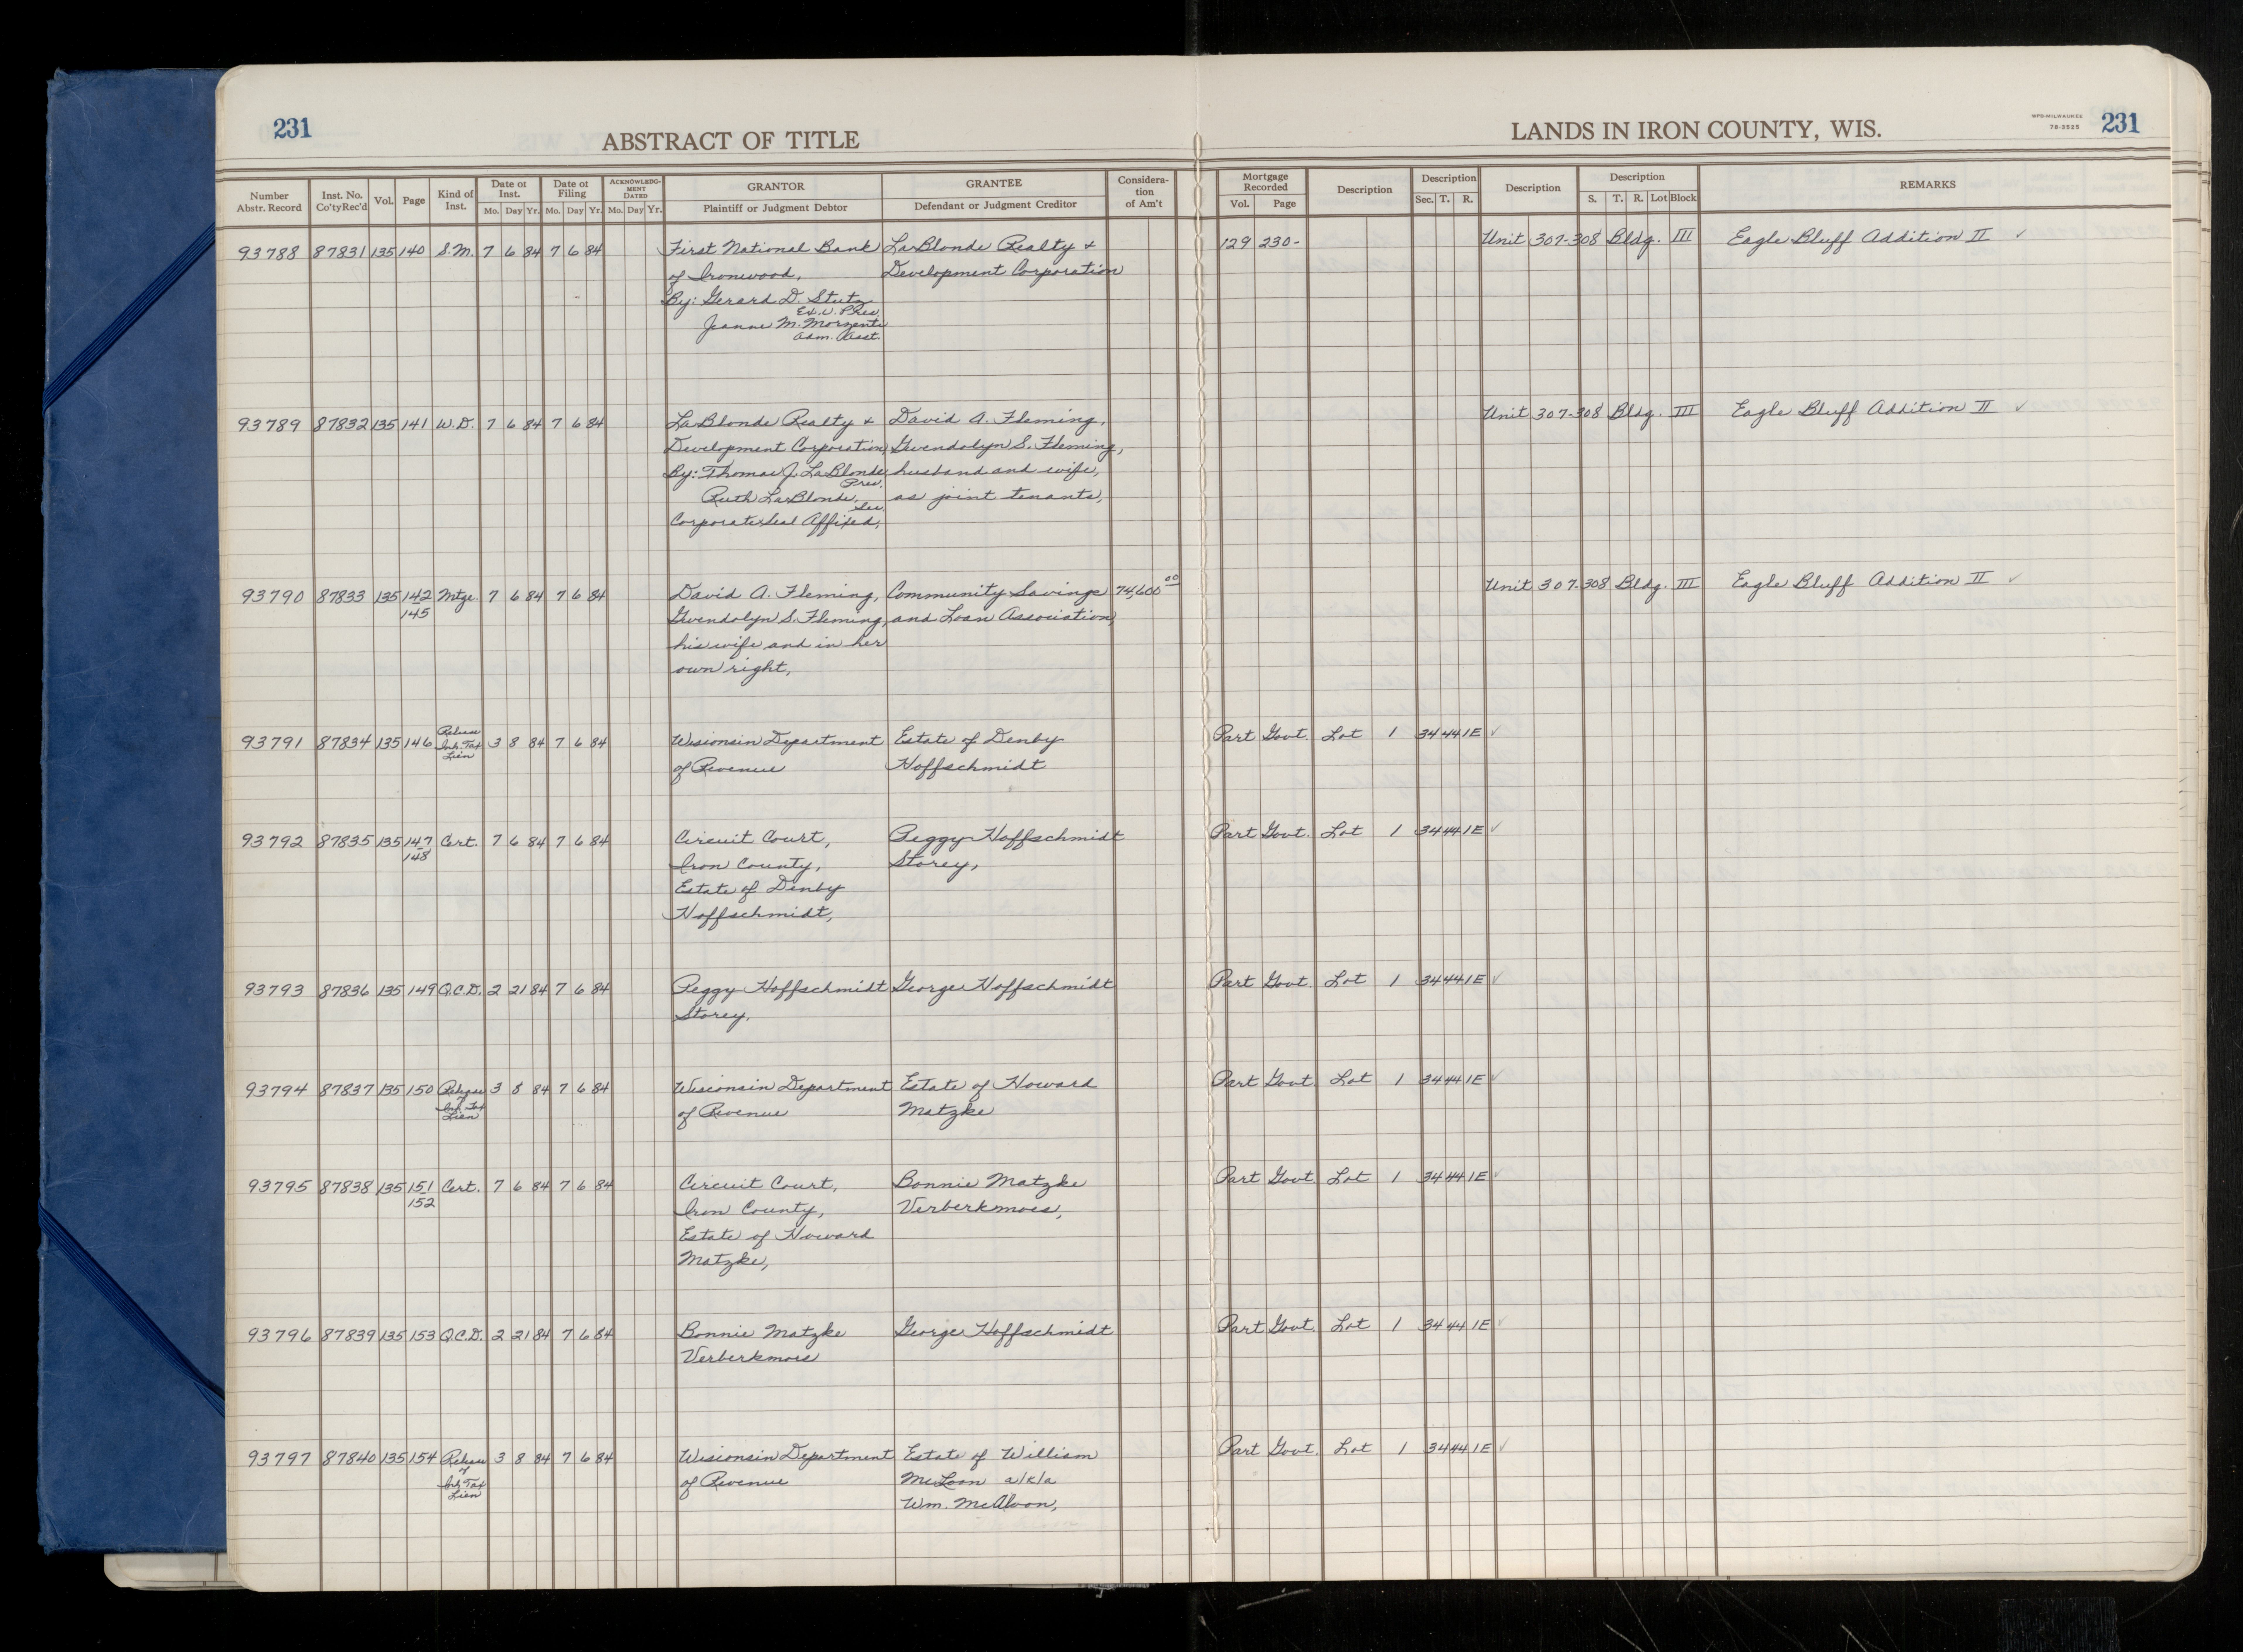 231
ABSTRACT OF TITLE
LANDS IN IRON COUNTY, WIS.
MPB-MILWAUKEE
78-3525
231
Number Abstr. Record Inst. No. Co'ty Rec'd Vol. Page Kind of Inst. Date of Inst. Mo. Day Yr. Date of Filing Mo. Day Yr. ACKNOWLEDG-MENT DATED Mo. Day Yr. GRANTOR Plaintiff or Judgment Debtor GRANTEE Defendant or Judgment Creditor Considera-tion of Am't Mortgage Recorded Vol. Page Description Description Sec. T. R. Description Description S. T. R. Lot Block REMARKS
93788 87831 135 140 S.M. 7 6 84 7 6 84 First National Bank LaBlonde Realty & 129 230- Unit 307-308 Bldg. III Eagle Bluff Addition II ✓
of Ironwood, Development Corporation
By: Gerard D. Stutz
Ex. V. Pres.
Jeanne M. Morzenti
Adm. Asst.
93789 87832 135 141 W.D. 7 6 84 7 6 84 LaBlonde Realty & David A. Fleming, Unit 307-308 Bldg. III Eagle Bluff Addition II ✓
Development Corporation, Gwendolyn S. Fleming,
By: Thomas J. LaBlonde, husband and wife,
Pres.
Ruth LaBlonde, as joint tenants,
Sec.
Corporate Seal Affixed,
93790 87833 135 142 Mtge. 7 6 84 7 6 84 David A. Fleming, Community Savings 74,600 00 Unit 307-308 Bldg. III Eagle Bluff Addition II ✓
145 Gwendolyn S. Fleming, and Loan Association,
his wife and in her
own right,
93791 87834 135 146 Release Inh. Tax Lien 3 8 84 7 6 84 Wisconsin Department Estate of Denby Part Govt. Lot 1 34 44 1E ✓
of Revenue Hoffschmidt
93792 87835 135 147 Cert. 7 6 84 7 6 84 Circuit Court, Peggy Hoffschmidt Part Govt. Lot 1 34 44 1E ✓
148 Iron County, Storey,
Estate of Denby
Hoffschmidt,
93793 87836 135 149 Q.C.D. 2 21 84 7 6 84 Peggy Hoffschmidt George Hoffschmidt Part Govt. Lot 1 34 44 1E ✓
Storey,
93794 87837 135 150 Release of Inh. Tax Lien 3 8 84 7 6 84 Wisconsin Department Estate of Howard Part Govt. Lot 1 34 44 1E ✓
of Revenue Matzke
93795 87838 135 151 Cert. 7 6 84 7 6 84 Circuit Court, Bonnie Matzke Part Govt. Lot 1 34 44 1E ✓
152 Iron County, Verberkmoes,
Estate of Howard
Matzke,
93796 87839 135 153 Q.C.D. 2 21 84 7 6 84 Bonnie Matzke George Hoffschmidt Part Govt. Lot 1 34 44 1E ✓
Verberkmoes
93797 87840 135 154 Release of Inh. Tax Lien 3 8 84 7 6 84 Wisconsin Department Estate of William Part Govt. Lot 1 34 44 1E ✓
of Revenue McLoon a/k/a
Wm. McAloon,